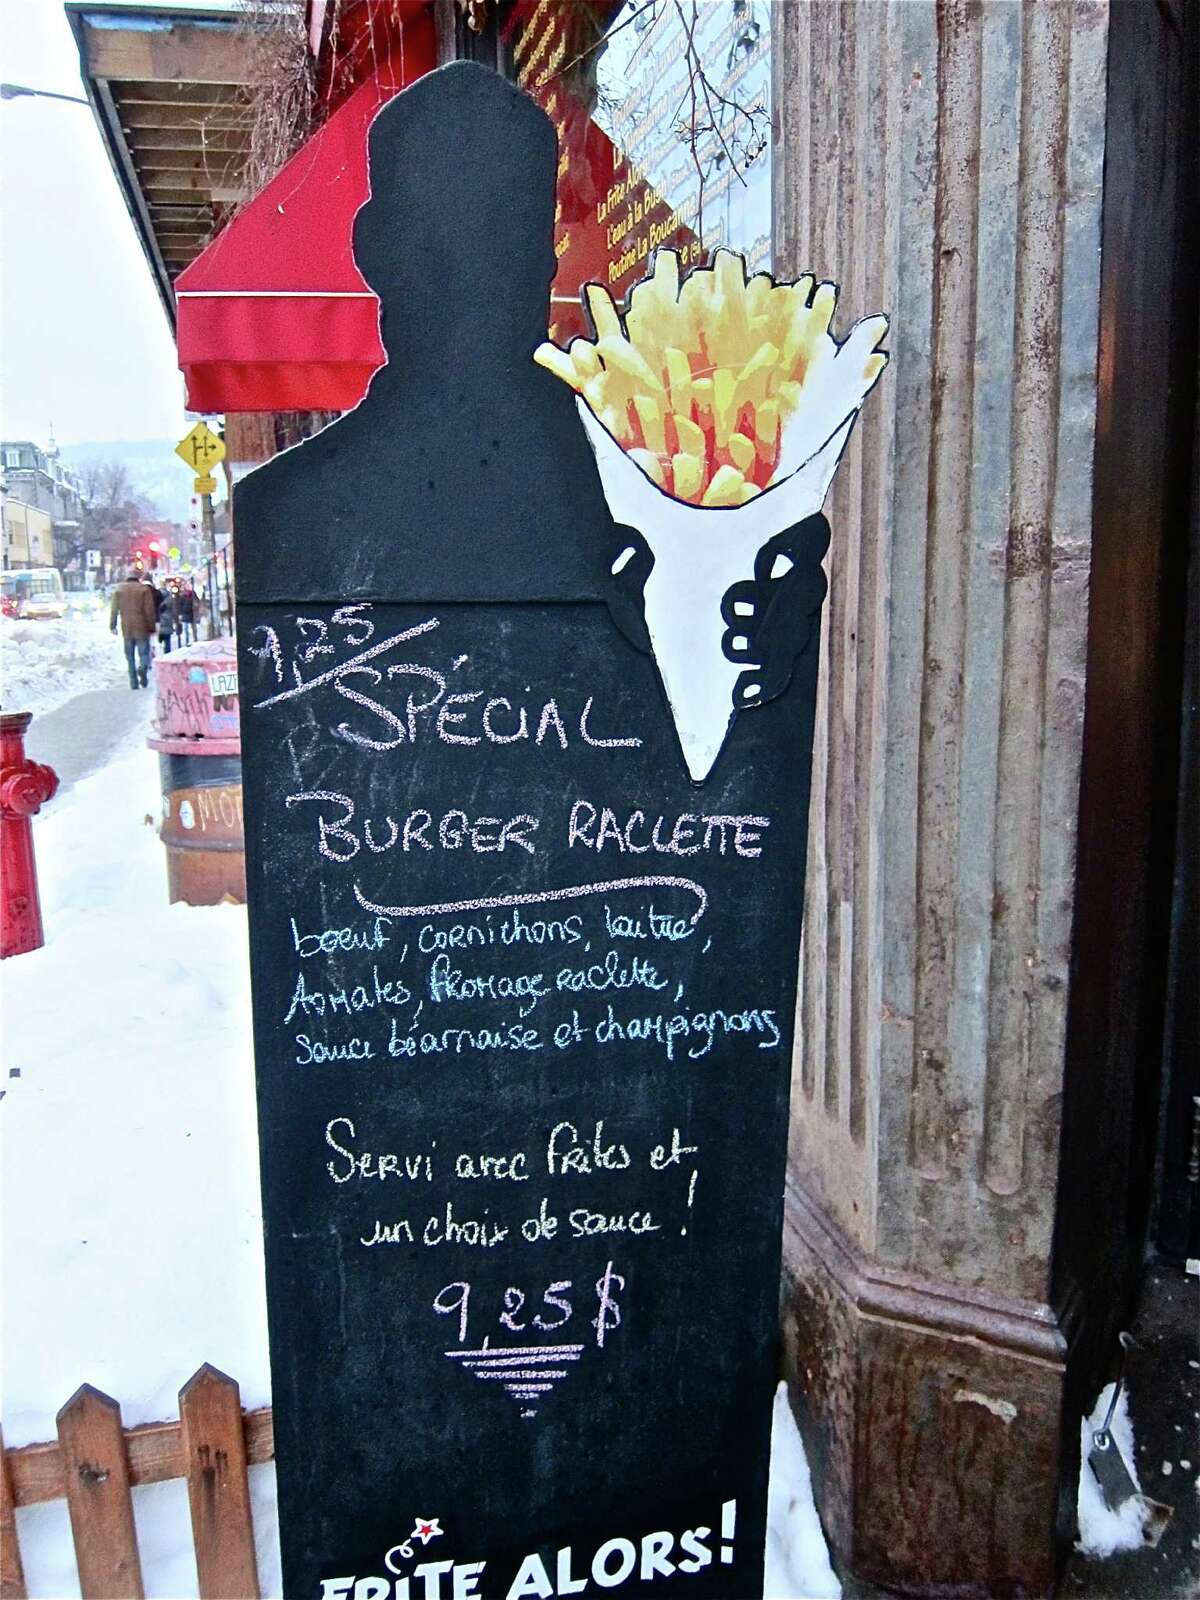 La Frite Alors
L'eau à la Bus
Poutine La Boucanne
LAZE
MO
9,25
SPÉCIAL
BURGER RACLETTE
bœuf, cornichons, laitue,
tomates, fromage raclette,
sauce béarnaise et champignons
Servi avec frites et
un choix de sauce !
9,25 $
FRITE ALORS!